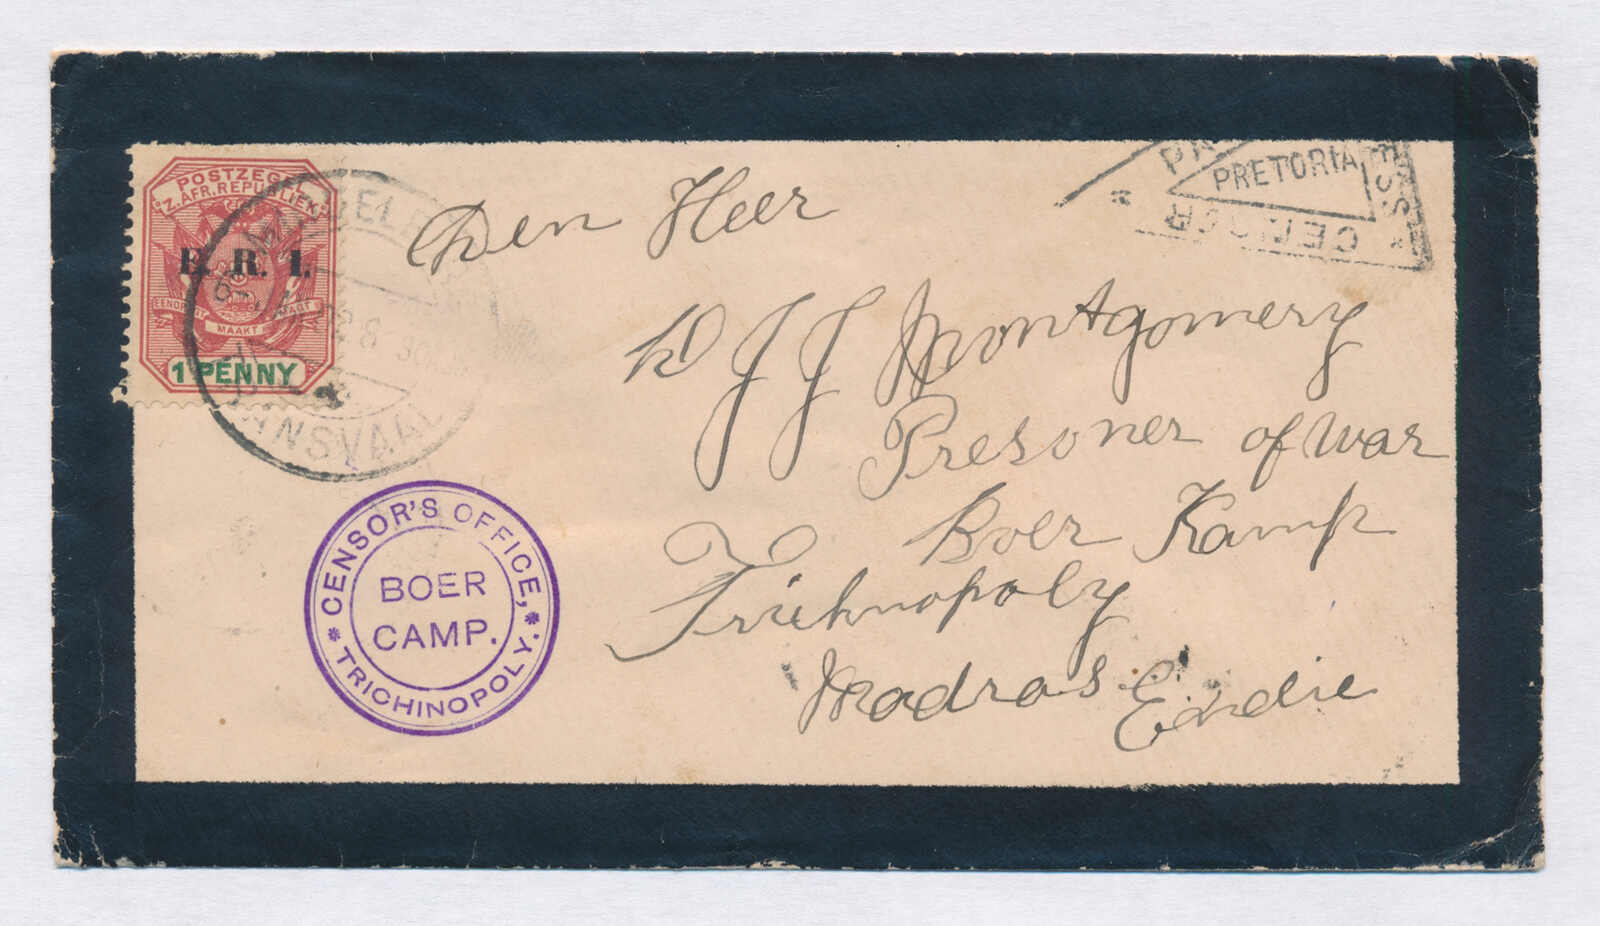 POSTZEGEL
Z. AFR. REPUBLIEK
E. R. I.
EENDRAGT MAAKT MAGT
1 PENNY
PRETORIA
CENSOR
Den Heer
J J Montgomery
Presoner of war
Boer Kamp
Trichnopoly
Madras Endie
CENSOR'S OFFICE,
BOER
CAMP.
* TRICHINOPOLY. *